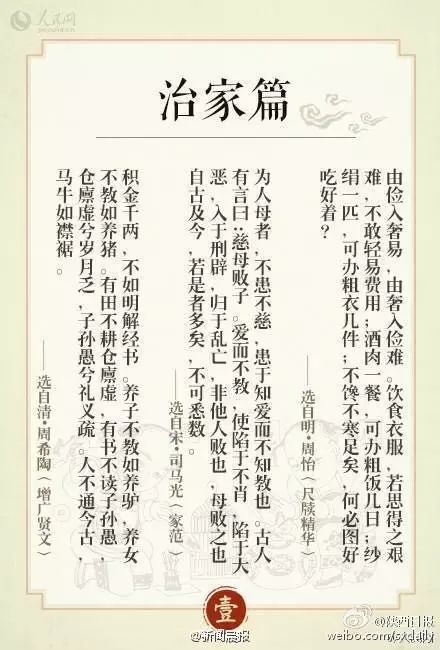 人民网
治家篇
由俭入奢易，由奢入俭难。饮食衣服，若思得之艰
难，不敢轻易费用；酒肉一餐，可办粗饭几日；纱
绢一匹，可办粗衣几件；不馋不寒足矣，何必图好
吃好着？
——选自明·周怡（尺牍精华）
为人母者，不患不慈，患于知爱而不知教也。古人
有言曰：慈母败子。爱而不教，使陷于不肖，陷于大
恶，入于刑辟，归于乱亡，非他人败也，母败之也
自古及今，若是者多矣，不可悉数。
——选自宋·司马光（家范）
积金千两，不如明解经书。养子不教如养驴，养女
不教如养猪。有田不耕仓廪虚，有书不读子孙愚，
仓廪虚兮岁月乏，子孙愚兮礼义疏。人不通今古，
马牛如襟裾。
——选自清·周希陶（增广贤文）
壹
@新闻晨报
@陕西日报
weibo.com/sxdaily